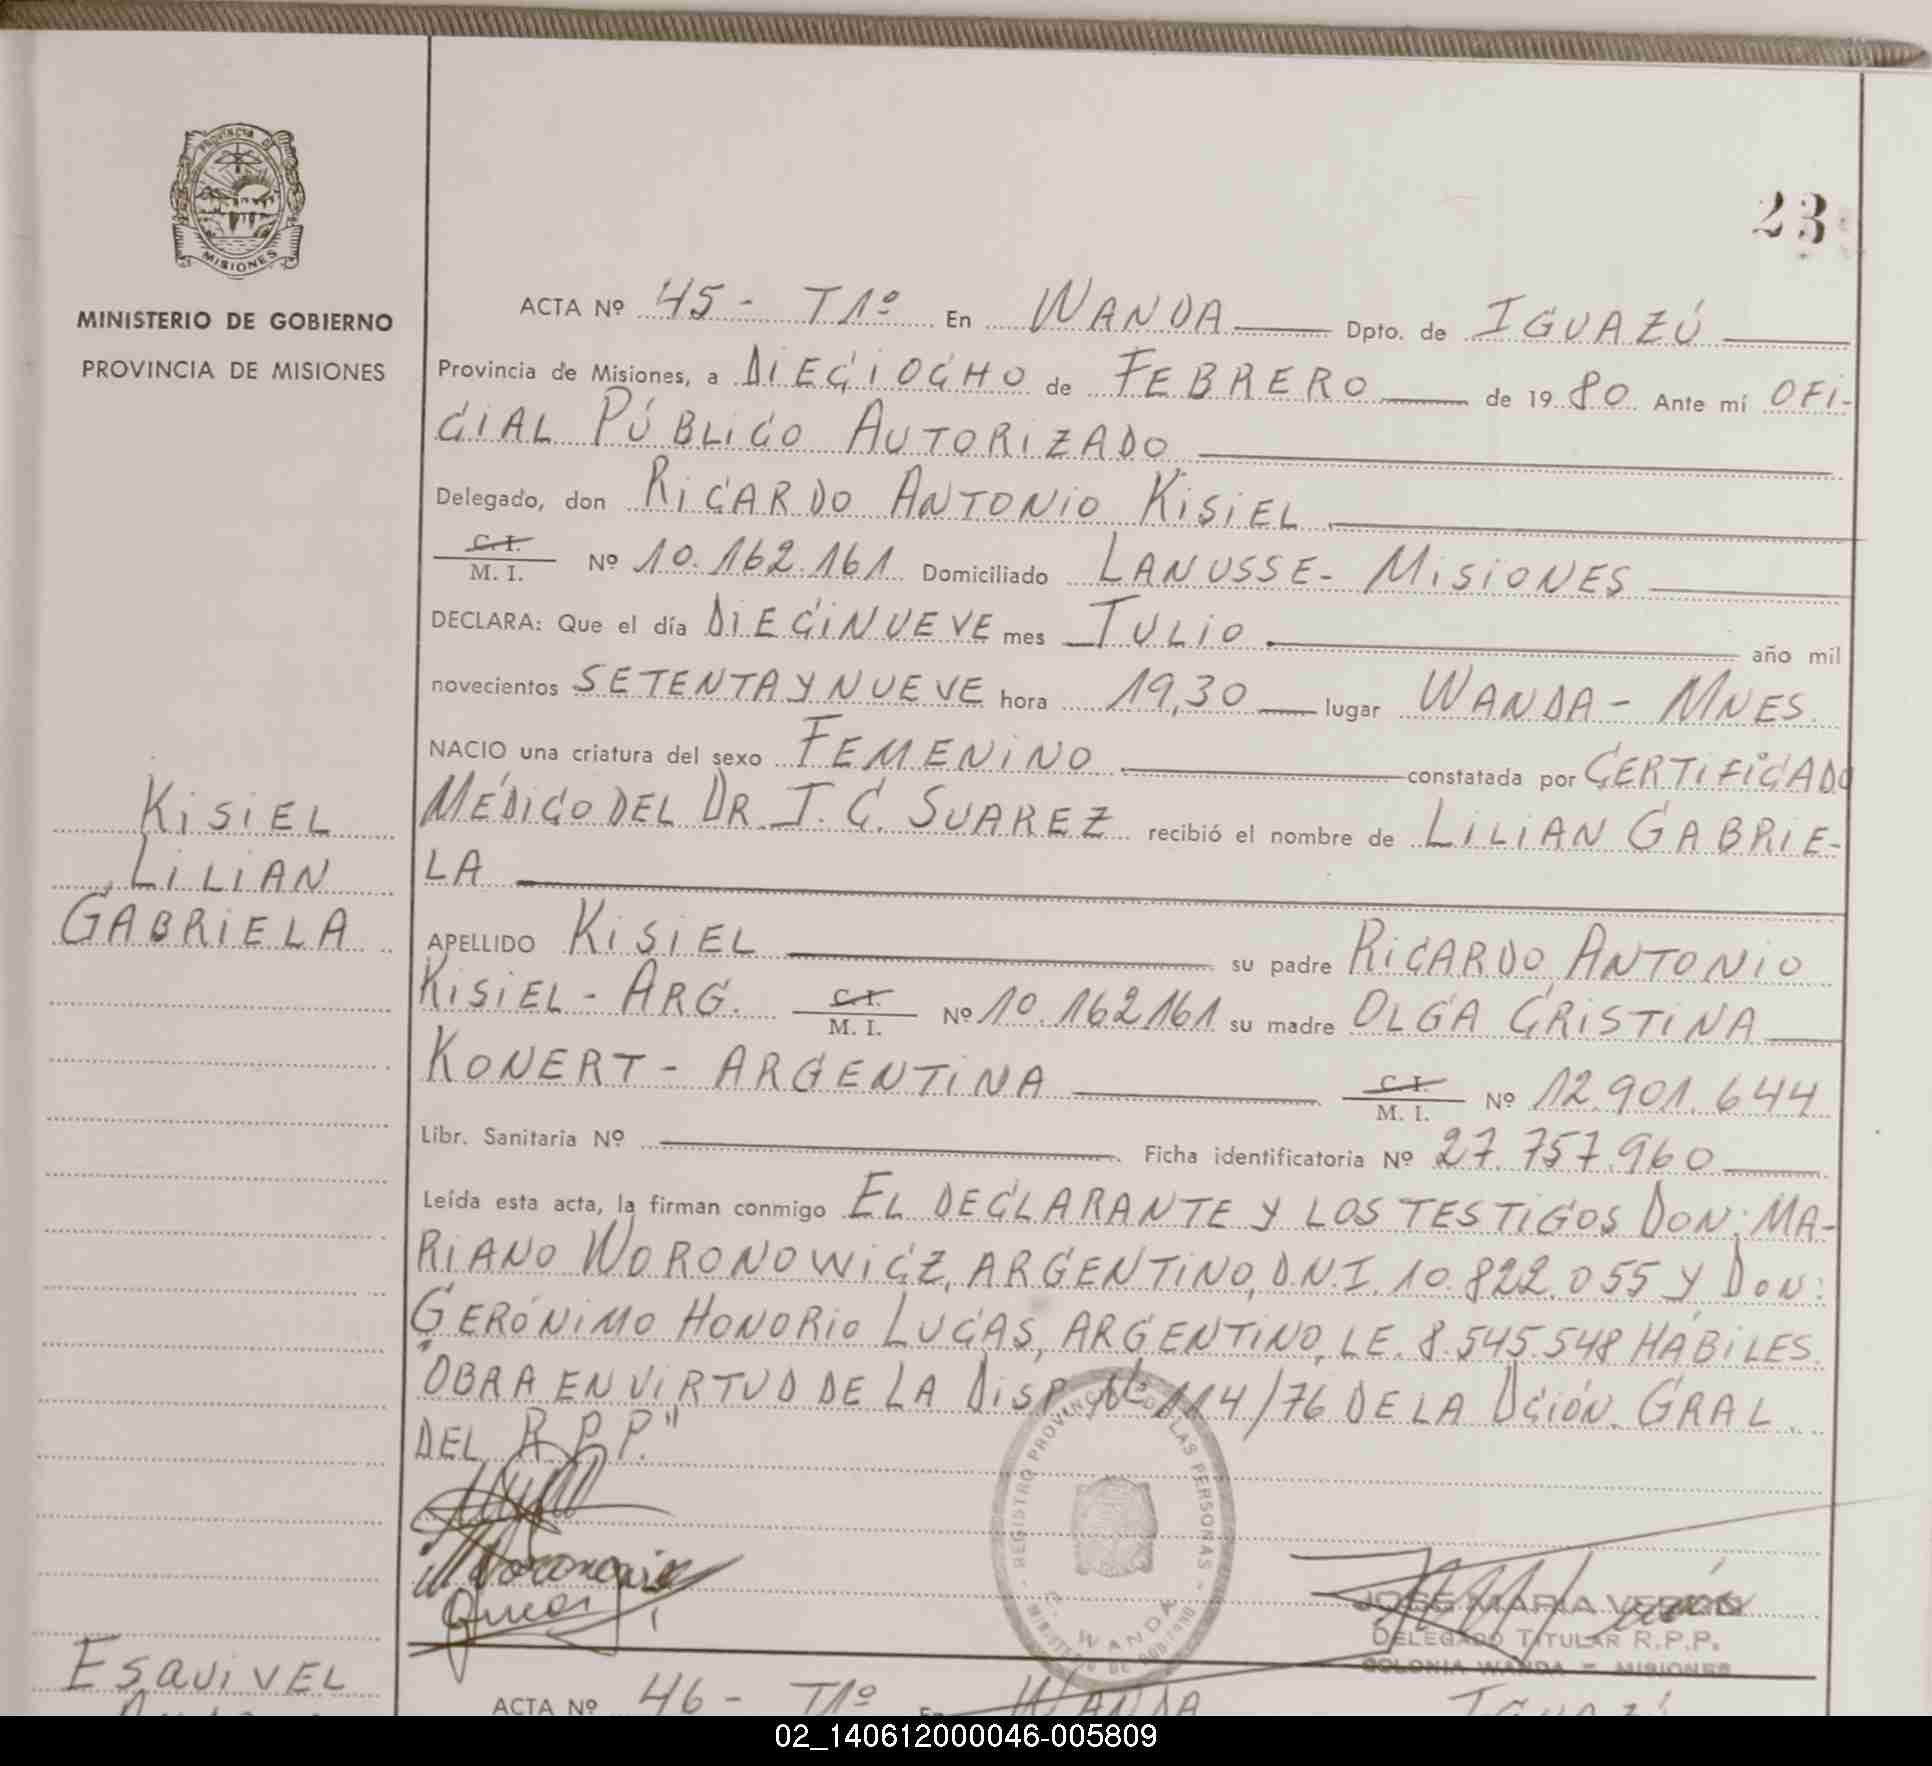 PROVINCIA DE
MISIONES
MINISTERIO DE GOBIERNO
PROVINCIA DE MISIONES
23
ACTA Nº 45 - T1º En WANDA Dpto. de IGUAZÚ
Provincia de Misiones, a DIECIOCHO de FEBRERO de 1980 Ante mí OFI-
CIAL PÚBLICO AUTORIZADO
Delegado, don RICARDO ANTONIO KISIEL
C. I.
M. I. Nº 10.162.161 Domiciliado LANUSSE - MISIONES
DECLARA: Que el día DIECINUEVE mes JULIO año mil
novecientos SETENTA Y NUEVE hora 19,30 lugar WANDA - MNES.
NACIO una criatura del sexo FEMENINO constatada por CERTIFICADO
MÉDICO DEL DR. J. C. SUAREZ recibió el nombre de LILIAN GABRIE-
LA
KISIEL
LILIAN
GABRIELA
APELLIDO KISIEL su padre RICARDO ANTONIO
KISIEL - ARG. C. I. M. I. Nº 10.162.161 su madre OLGA CRISTINA
KONERT - ARGENTINA C. I. M. I. Nº 12.901.644
Libr. Sanitaria Nº Ficha identificatoria Nº 27.757.960
Leída esta acta, la firman conmigo EL DECLARANTE Y LOS TESTIGOS DON: MA-
RIANO WORONOWICZ, ARGENTINO, D.N.I. 10.822.055 Y DON:
GERÓNIMO HONORIO LUCAS, ARGENTINO, L.E. 8.545.548 HÁBILES.
"OBRA EN VIRTUD DE LA DISP. Nº 114/76 DE LA DCIÓN. GRAL.
DEL R. P. P."
REGISTRO PROVINCIAL DE LAS PERSONAS
WANDA
DELEGADO TITULAR R.P.P.
COLONIA WANDA - MISIONES
ESQUIVEL
ACTA Nº 46 - T1º En WANDA IGUAZÚ
02_140612000046-005809